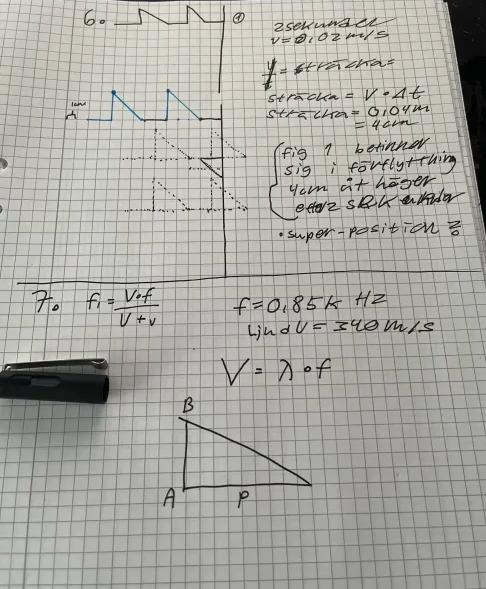 6.
①
2 sekunder
v = 0,02 m/s
sträcka =
sträcka = v · Δt
sträcka = 0,04 m
= 4cm
1cm
fig 1 befinner
sig i förflyttning
4cm åt höger
efter 2 sekunder
• super-position ?
7. f₁ = V·f / V + v
f = 0,85 k Hz
Ljud V = 340 m/s
V = λ · f
B
A
P